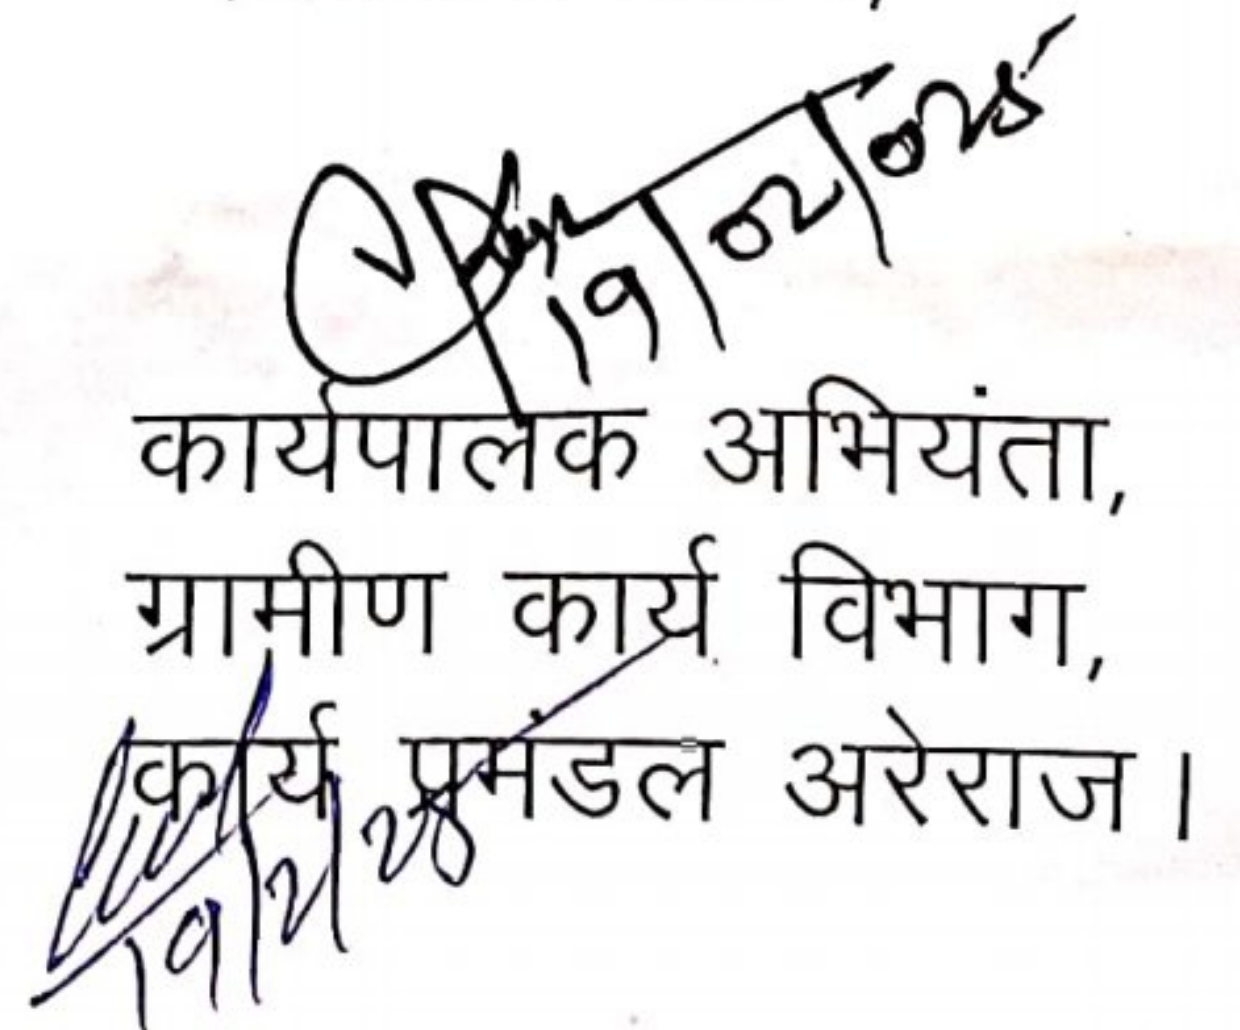 19/02/025
कार्यपालक अभियंता,
ग्रामीण कार्य विभाग,
कार्य प्रमंडल अरेराज।
19/2/25